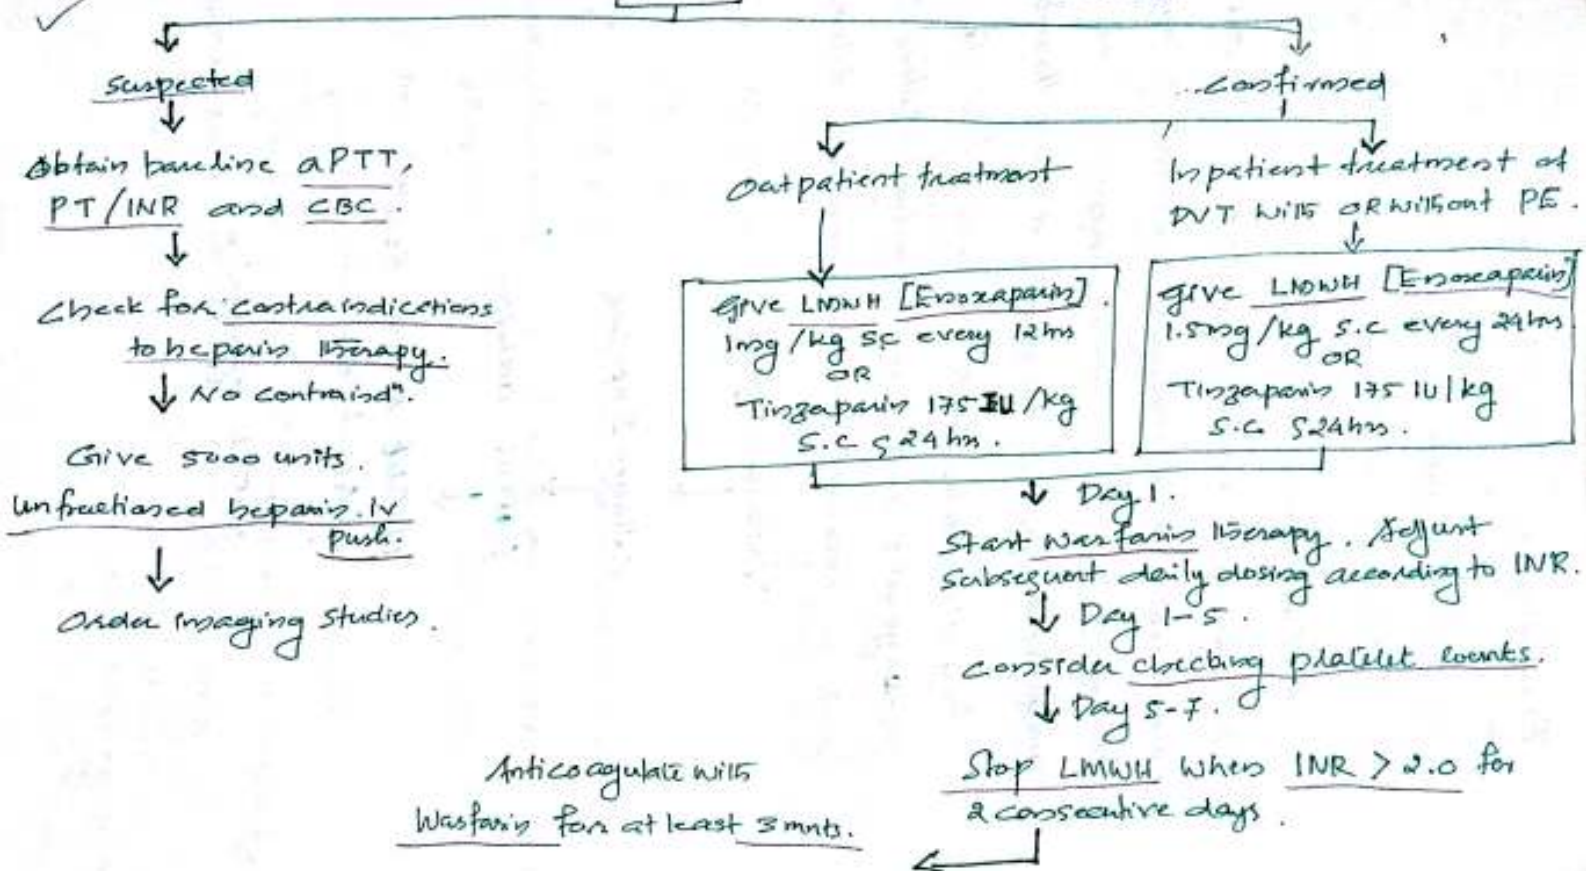 Suspected
Obtain baseline aPTT,
PT/INR and CBC.
Check for contraindications
to heparin therapy.
No contraindⁿ.
Give 5000 units.
Unfractioned heparin. IV
push.
Order imaging studies.
Confirmed
Outpatient treatment
Give LMWH [Enoxaparin].
1mg/kg SC every 12hrs
OR
Tinzaparin 175 IU/kg
S.C 24hrs.
Inpatient treatment of
DVT with OR without PE.
Give LMWH [Enoxaparin]
1.5mg/kg S.C every 24hrs
OR
Tinzaparin 175 IU/kg
S.C 24hrs.
Day 1.
Start Warfarin therapy. Adjust
subsequent daily dosing according to INR.
Day 1-5.
Consider checking platelet counts.
Day 5-7.
Stop LMWH when INR > 2.0 for
2 consecutive days.
Anticoagulate with
Warfarin for at least 3 mnts.